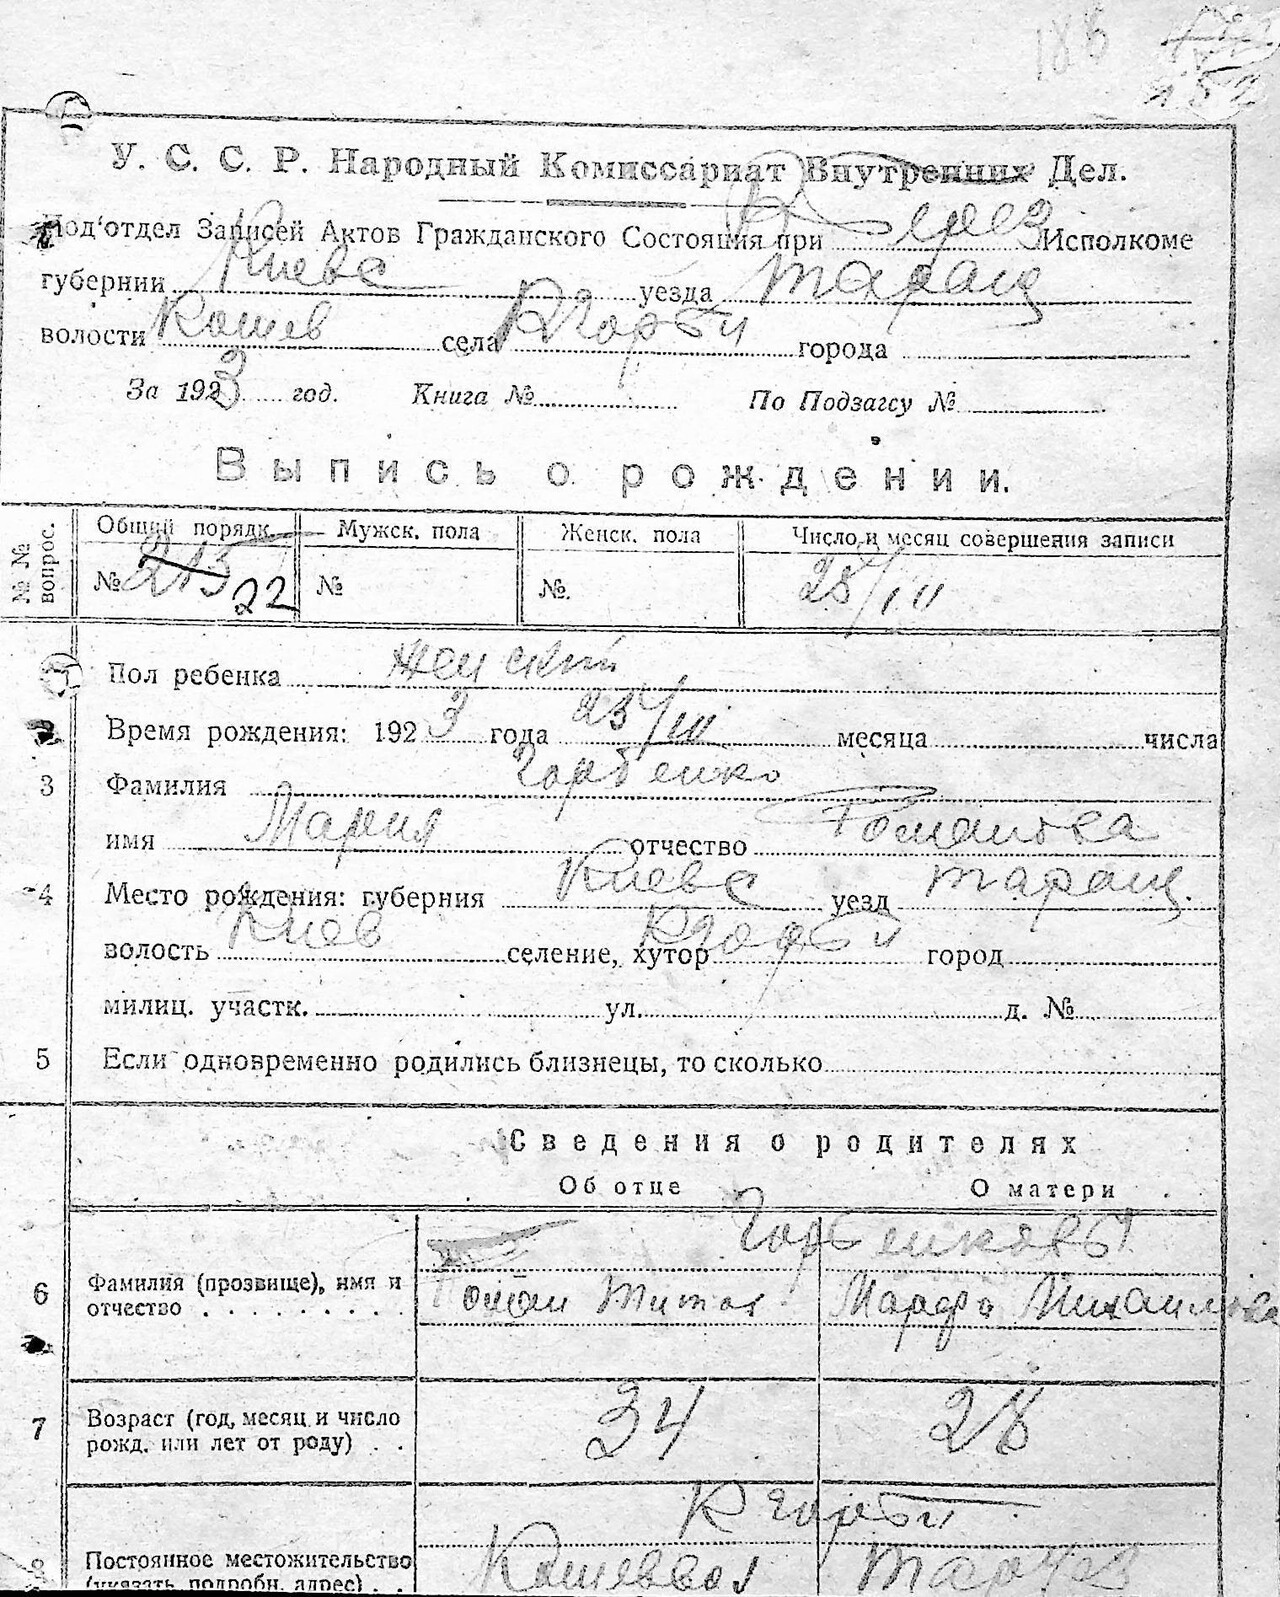 188
У. С. С. Р. Народный Комиссариат Внутренних Дел.
Под'отдел Записей Актов Гражданского Состояния при Исполкоме
губернии Киевс уезда Таращ
волости Кошев села КГорби города
За 1923 год. Книга № По Подзагсу №
Выпись о рождении.
№ № вопрос. Общий порядк. Мужск. пола Женск. пола Число и месяц совершения записи
№ 213 22 № №. 28/III
Пол ребенка женский
2 Время рождения: 1923 года 23/III месяца числа
3 Фамилия Горбенко
имя Мария отчество Романовка
4 Место рождения: губерния Киевс уезд Таращ.
волость Киев селение, хутор КГорби город
милиц. участк. ул. д. №
5 Если одновременно родились близнецы, то сколько
Сведения о родителях
Об отце О матери
Горбенковы
6 Фамилия (прозвище), имя и отчество Роман Титов Марфа Михаиловка
7 Возраст (год, месяц и число рожд. или лет от роду) 34 28
КГорби
Постоянное местожительство Кошеввол
(указать подробн. адрес)